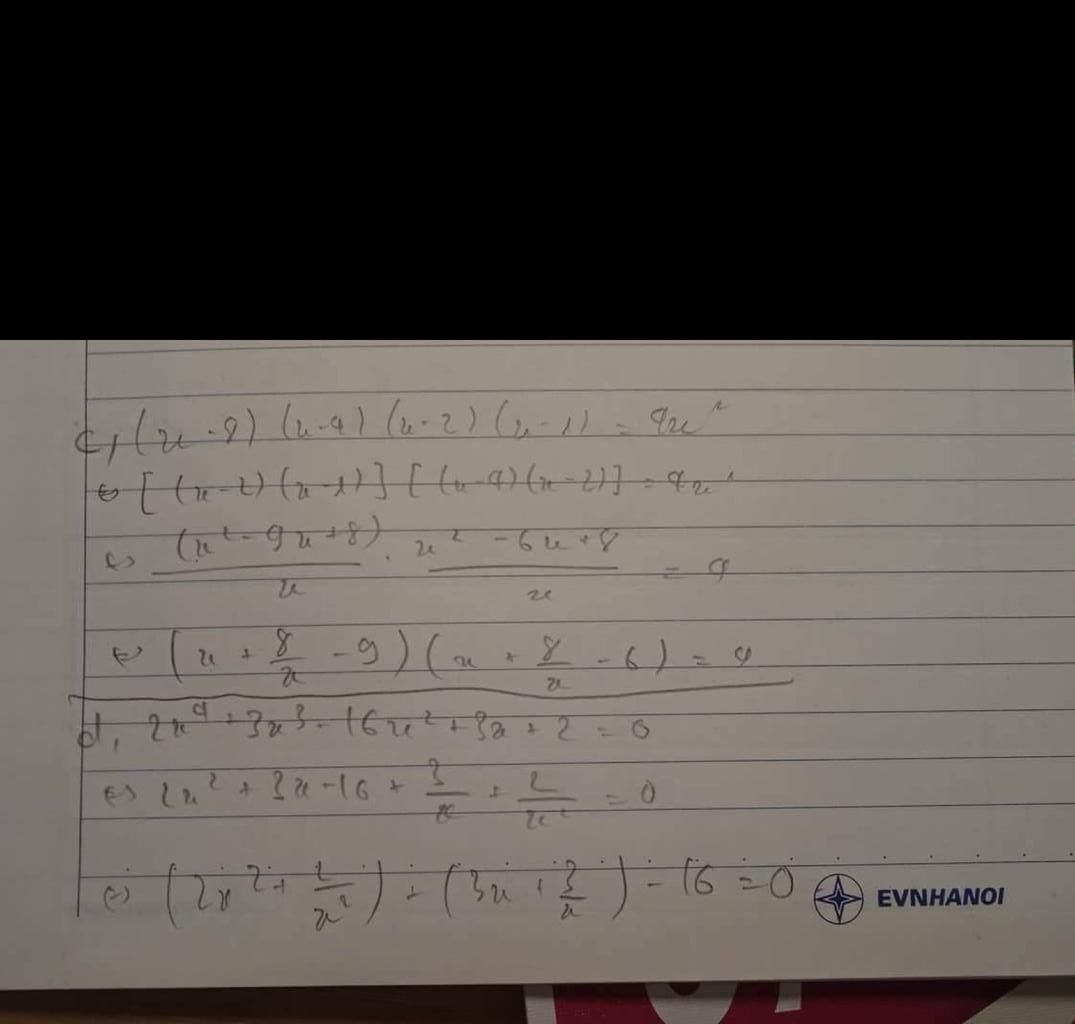 c, (x-8) (x-4) (x-2) (x-1) = 4x²
⇔ [ (x-2) (x-1) ] [ (x-4) (x-2) ] = 4x²
⇔ (x² - 9x + 8)/x . (x² - 6x + 8)/x = 4
⇔ (x + 8/x - 9) (x + 8/x - 6) = 4
d, 2x⁴ + 3x³ - 16x² + 3x + 2 = 0
⇔ 2x² + 3x - 16 + 3/x + 2/x² = 0
⇔ (2x² + 2/x²) + (3x + 3/x) - 16 = 0
EVNHANOI